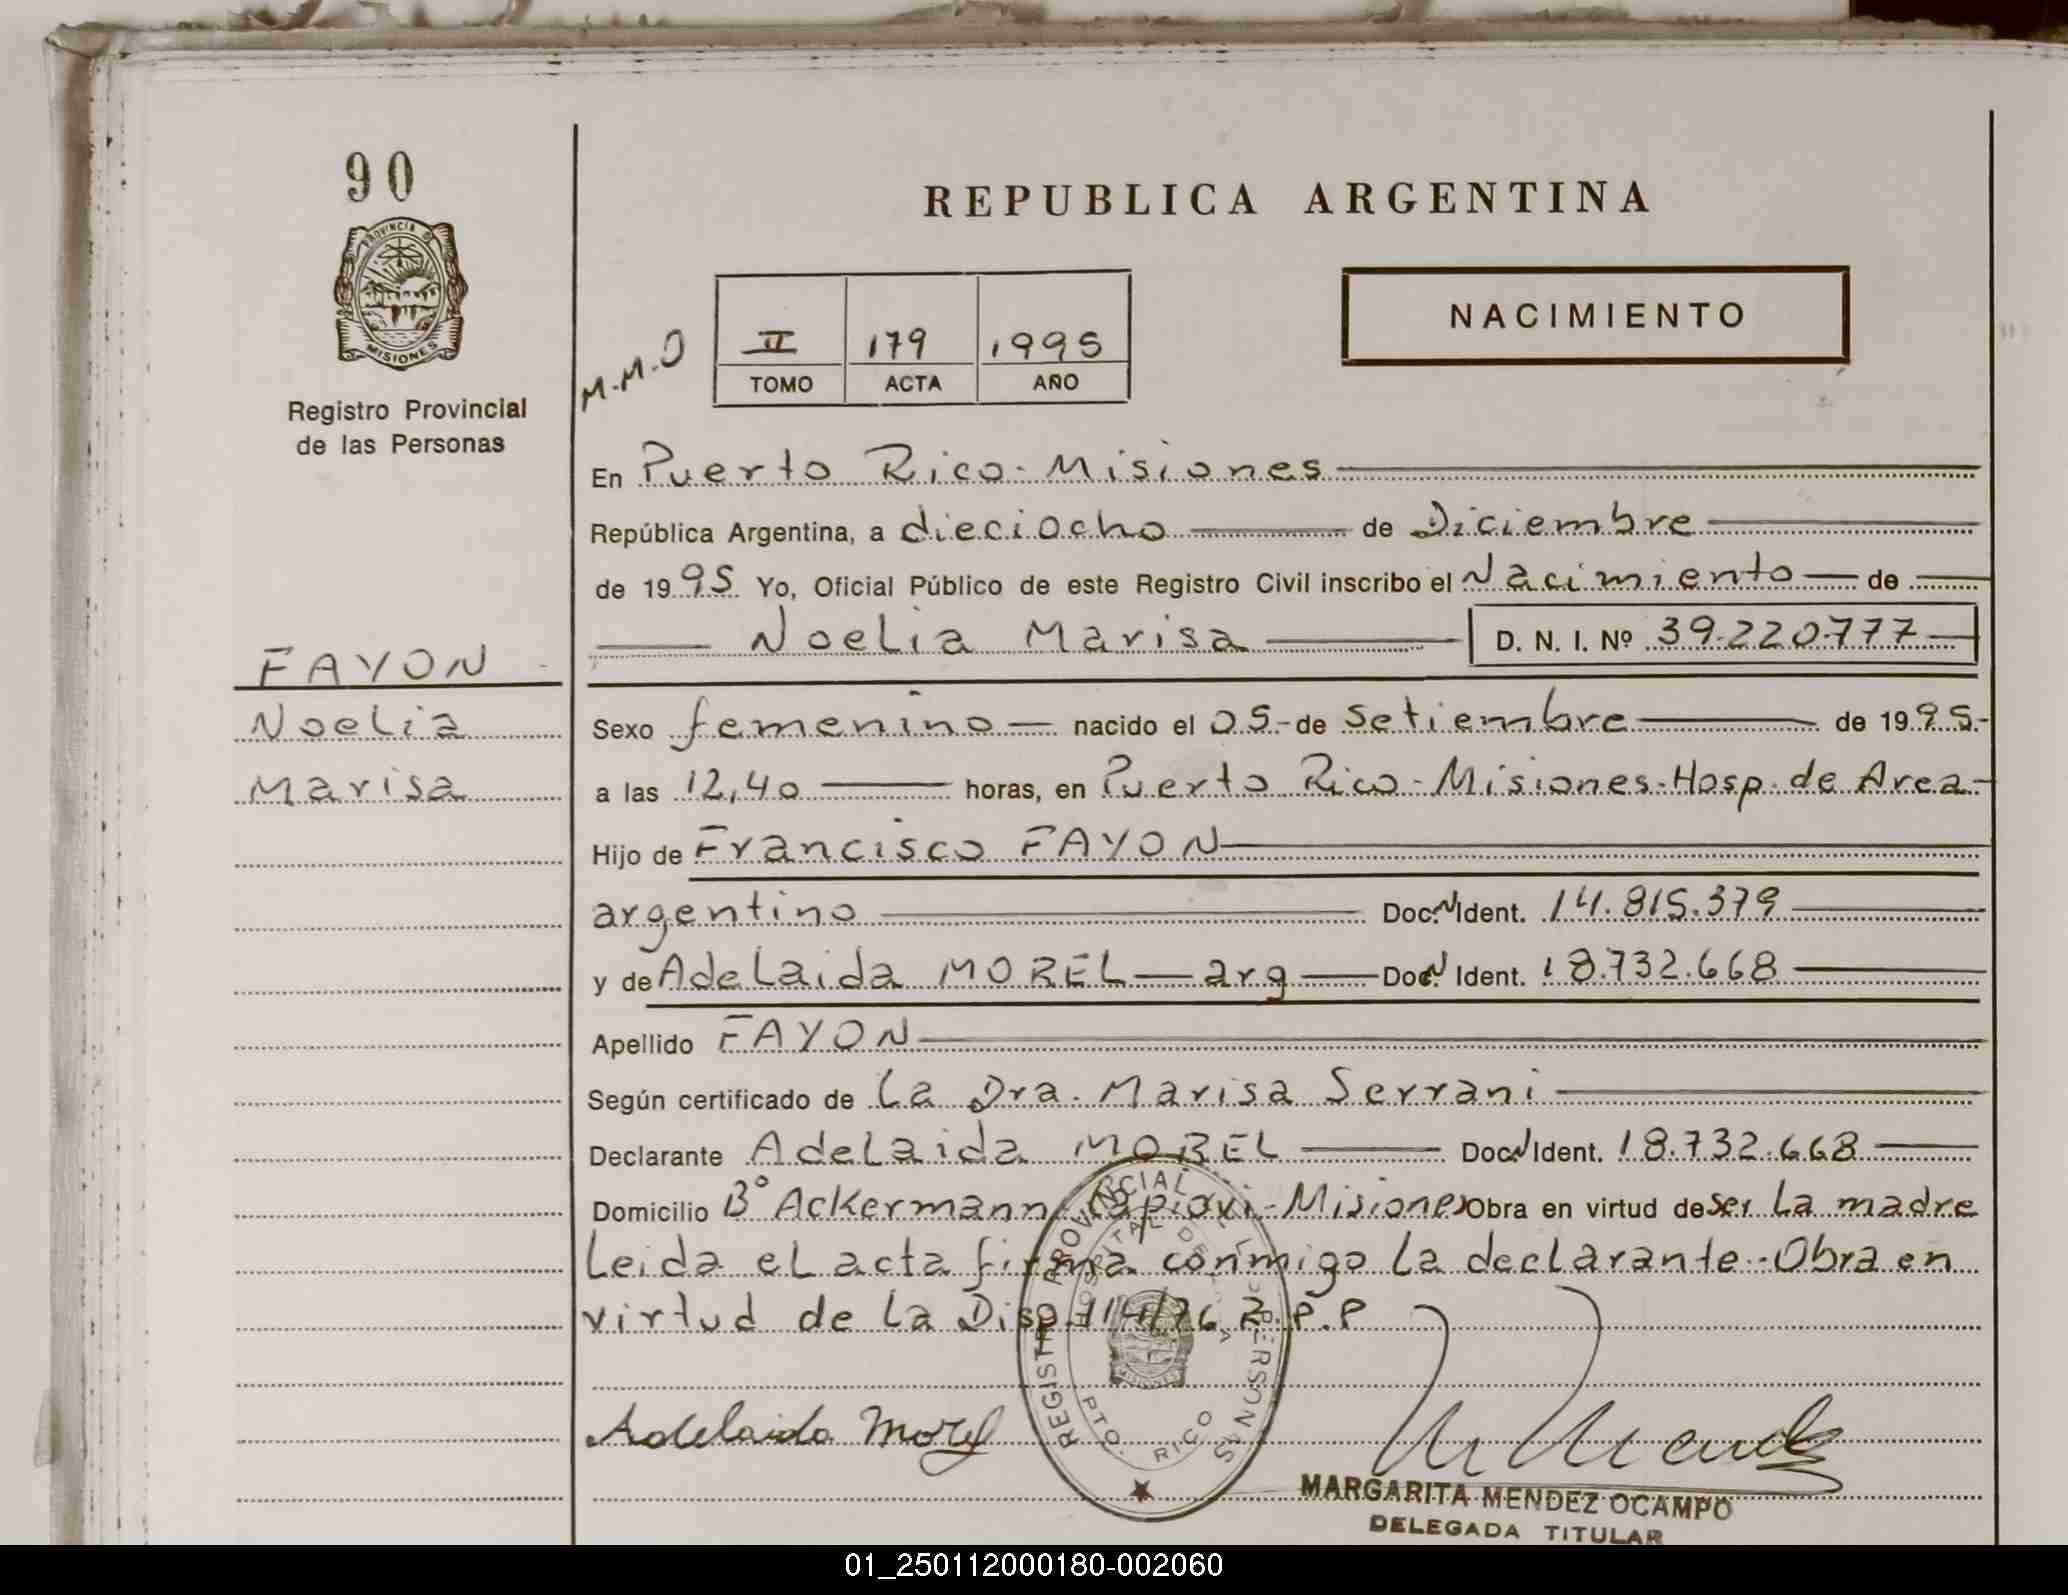 90
PROVINCIA D
MISIONES
Registro Provincial
de las Personas
REPUBLICA ARGENTINA
NACIMIENTO
M.M.O
II 179 1995
TOMO ACTA AÑO
En Puerto Rico - Misiones
República Argentina, a dieciocho de Diciembre
de 1995 Yo, Oficial Público de este Registro Civil inscribo el Nacimiento de
Noelia Marisa D. N. I. Nº 39.220.777
FAYON
Noelia
Marisa
Sexo femenino nacido el 05 de Setiembre de 1995
a las 12,40 horas, en Puerto Rico - Misiones - Hosp. de Area
Hijo de Francisco FAYON
argentino Doc. N Ident. 14.815.379
y de Adelaida MOREL arg Doc. N Ident. 18.732.668
Apellido FAYON
Según certificado de La Dra. Marisa Serrani
Declarante Adelaida MOREL Doc. N Ident. 18.732.668
Domicilio Bº Ackermann Capiovi - Misiones Obra en virtud de ser La madre
Leida el acta firma conmigo La declarante - Obra en
virtud de La Disp. 114/76 R.P.P
REGISTRO PROVINCIAL DE L PERSONAS
HOSPITAL DE
PTO. RICO
Adelaida Morel
MARGARITA MENDEZ OCAMPO
DELEGADA TITULAR
01_250112000180-002060